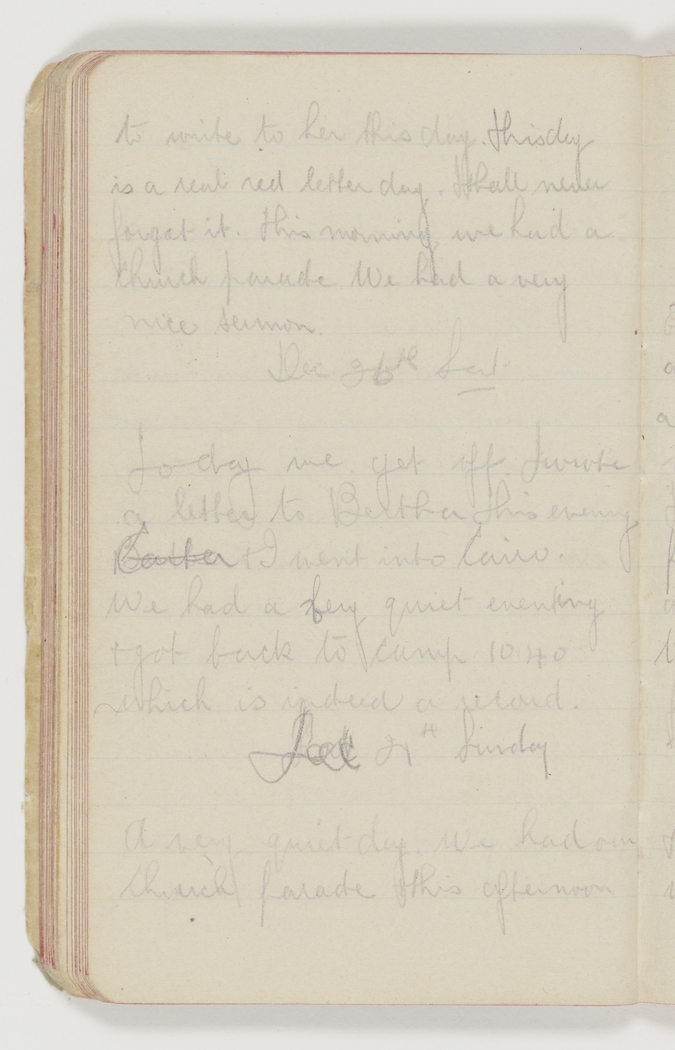 to write to her this day. This day
is a real red letter day. I shall never
forgat it. This morning we had a
Church parade We had a very
nice sermon.
Dec 26th Sat
To day we get off. I wrote
a letter to Bertha this evening
+ I went into Cairo.
We had a very quiet evening
+ got back to camp 10.40
which is indeed a record.
27th Sunday
A very quiet day. We had our
Church parade this afternoon